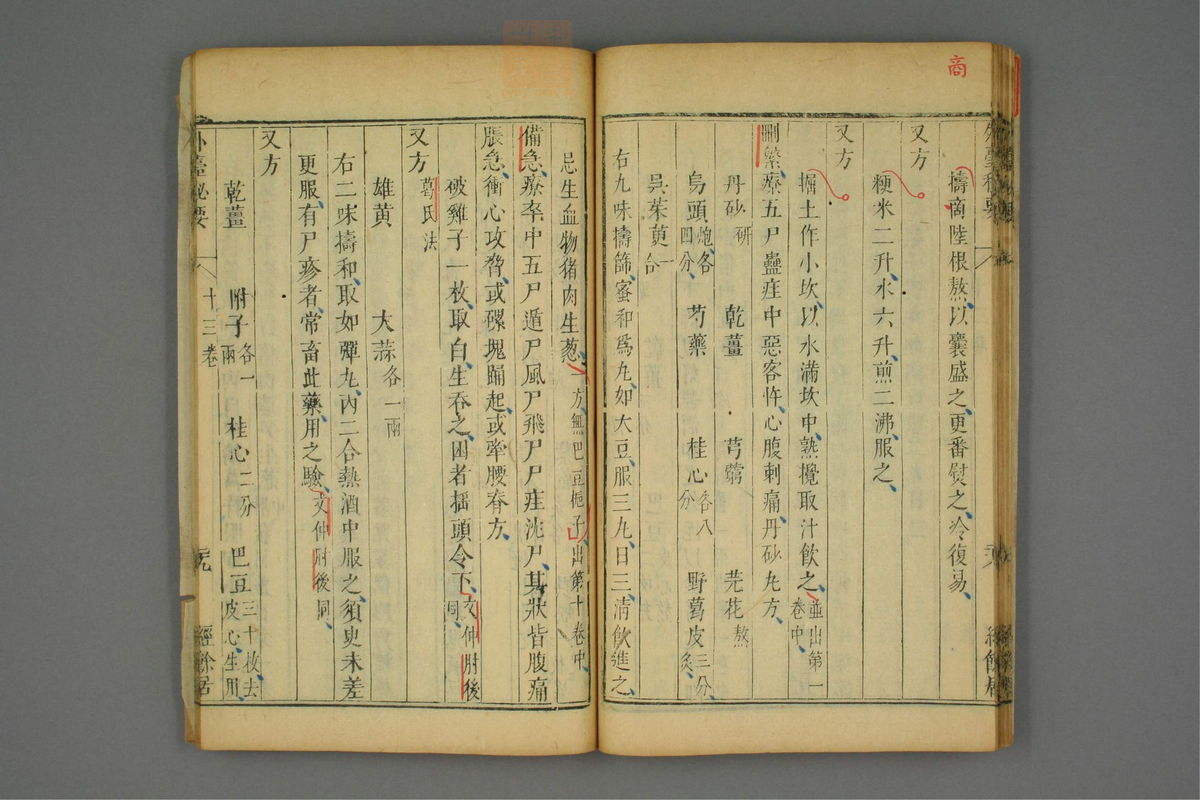 商
擣商陸根熬以囊盛之更番熨之冷復易
又方
粳米二升水六升煎二沸服之
又方
掘土作小坎以水滿坎中熟攪取汁飲之並出第一卷中
刪繁療五尸蠱疰中惡客忤心腹刺痛丹砂丸方
丹砂研 乾薑 芎藭 芫花熬
烏頭炮各四分 芍藥 桂心各八分 野葛皮三分炙
吳茱萸一合
右九味擣篩蜜和爲丸如大豆服三丸日三清飲進之
忌生血物猪肉生葱一方無巴豆梔子出第十卷中
備急療卒中五尸遁尸風尸飛尸尸疰沈尸其狀皆腹痛
脹急衝心攻脅或磥塊踊起或牽腰脊方
破雞子一枚取白生吞之困者揺頭令下文仲肘後同
又方葛氏法
雄黃 大蒜各一兩
右二味擣和取如彈丸內二合熱酒中服之須臾未差
更服有尸疹者常畜此藥用之驗文仲肘後同
又方
乾薑 附子各一兩 桂心二分 巴豆三十枚去皮心生用
外臺秘要 十三卷 經餘居